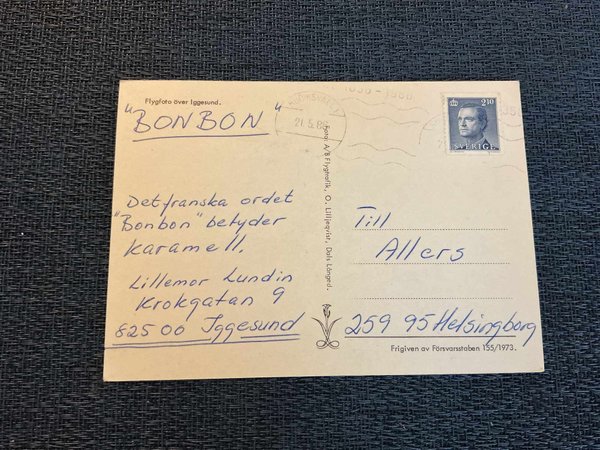 Flygfoto över Iggesund.
"BONBON"
Det franska ordet
"Bonbon" betyder
karamell.
Lillemor Lundin
Krokgatan 9
825 00 Iggesund
21.5.86
Foto: A/B Flygtrafik, O. Lilljeqvist, Dals Långed.
2.10
SVERIGE
Till
Allers
259 95 Helsingborg
Frigiven av Försvarsstaben 155/1973.